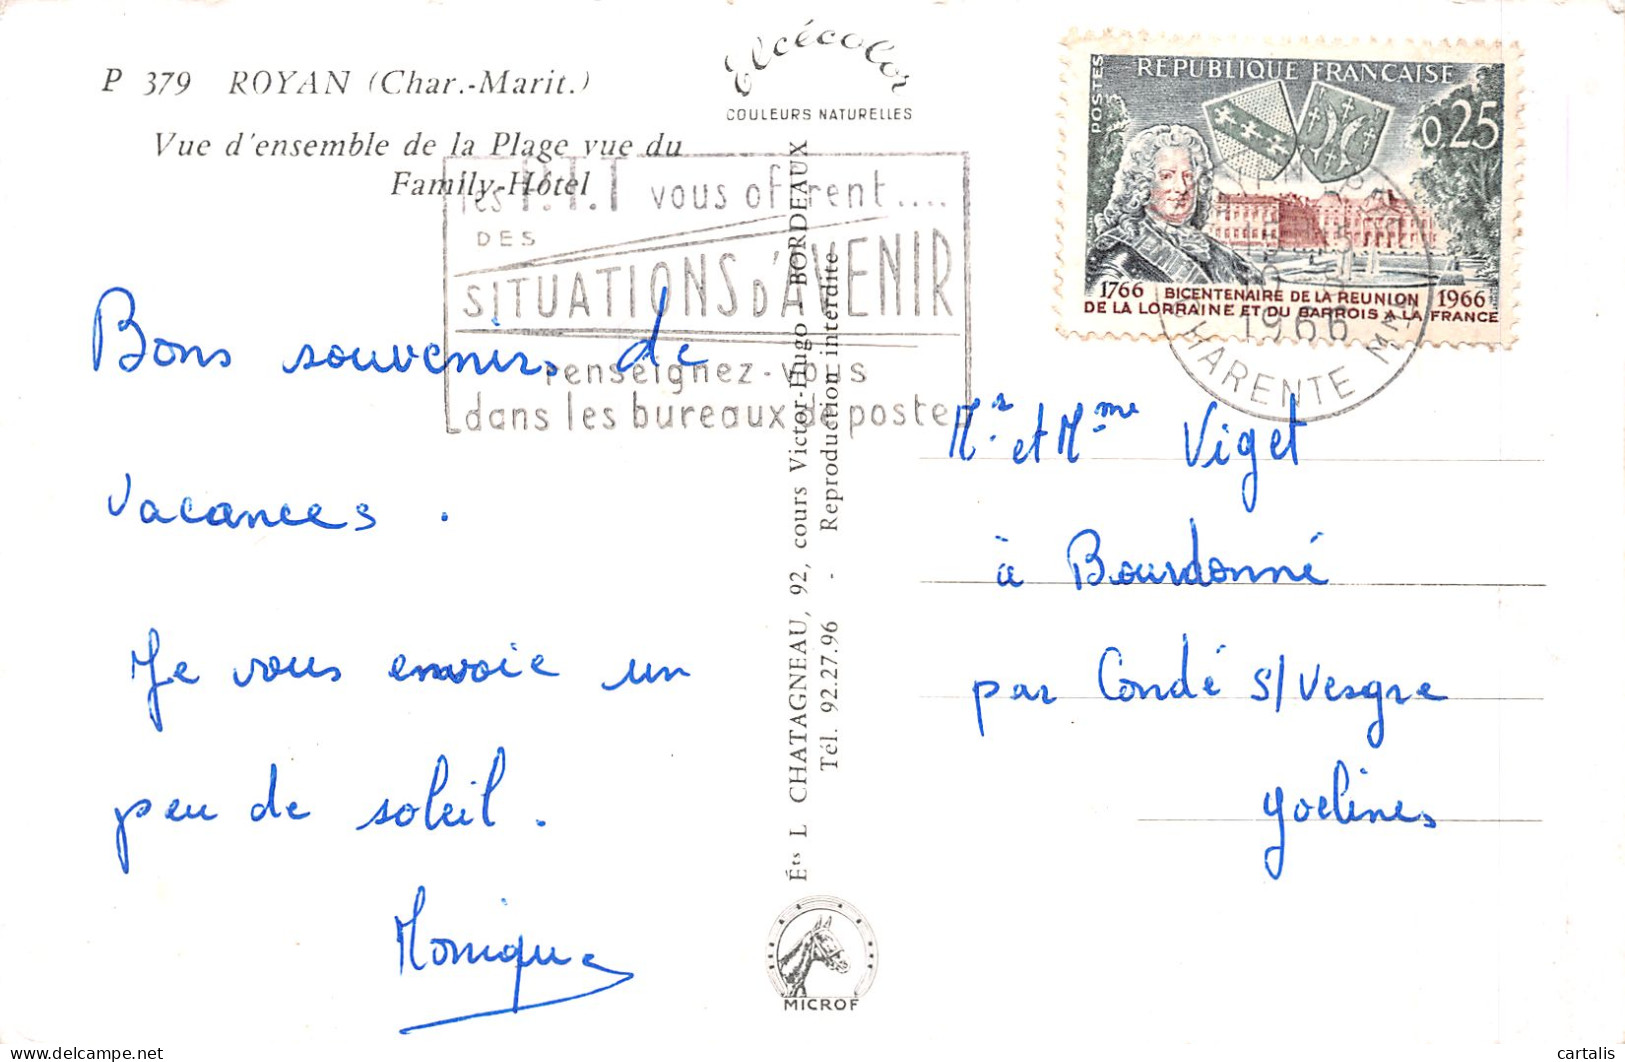 P 379 ROYAN (Char.-Marit.)
Vue d'ensemble de la Plage vue du
Family-Hôtel
Elcécolor
COULEURS NATURELLES
les P.T.T vous offrent....
DES
SITUATIONS D'AVENIR
renseignez-vous
dans les bureaux de poste
POSTES
REPUBLIQUE FRANCAISE
0,25
1766 BICENTENAIRE DE LA REUNION 1966
DE LA LORRAINE ET DU BARROIS A LA FRANCE
1966
CHARENTE MME
Bons souvenirs de
vacances.
Je vous envoie un
peu de soleil.
Monique
Éts L CHATAGNEAU, 92, cours Victor-Hugo - BORDEAUX
Tél. 92.27.96 - Reproduction interdite
MICROF
Mr. et Mme Viget
à Bourdonné
par Condé s/Vesgre
Yvelines
cartalis